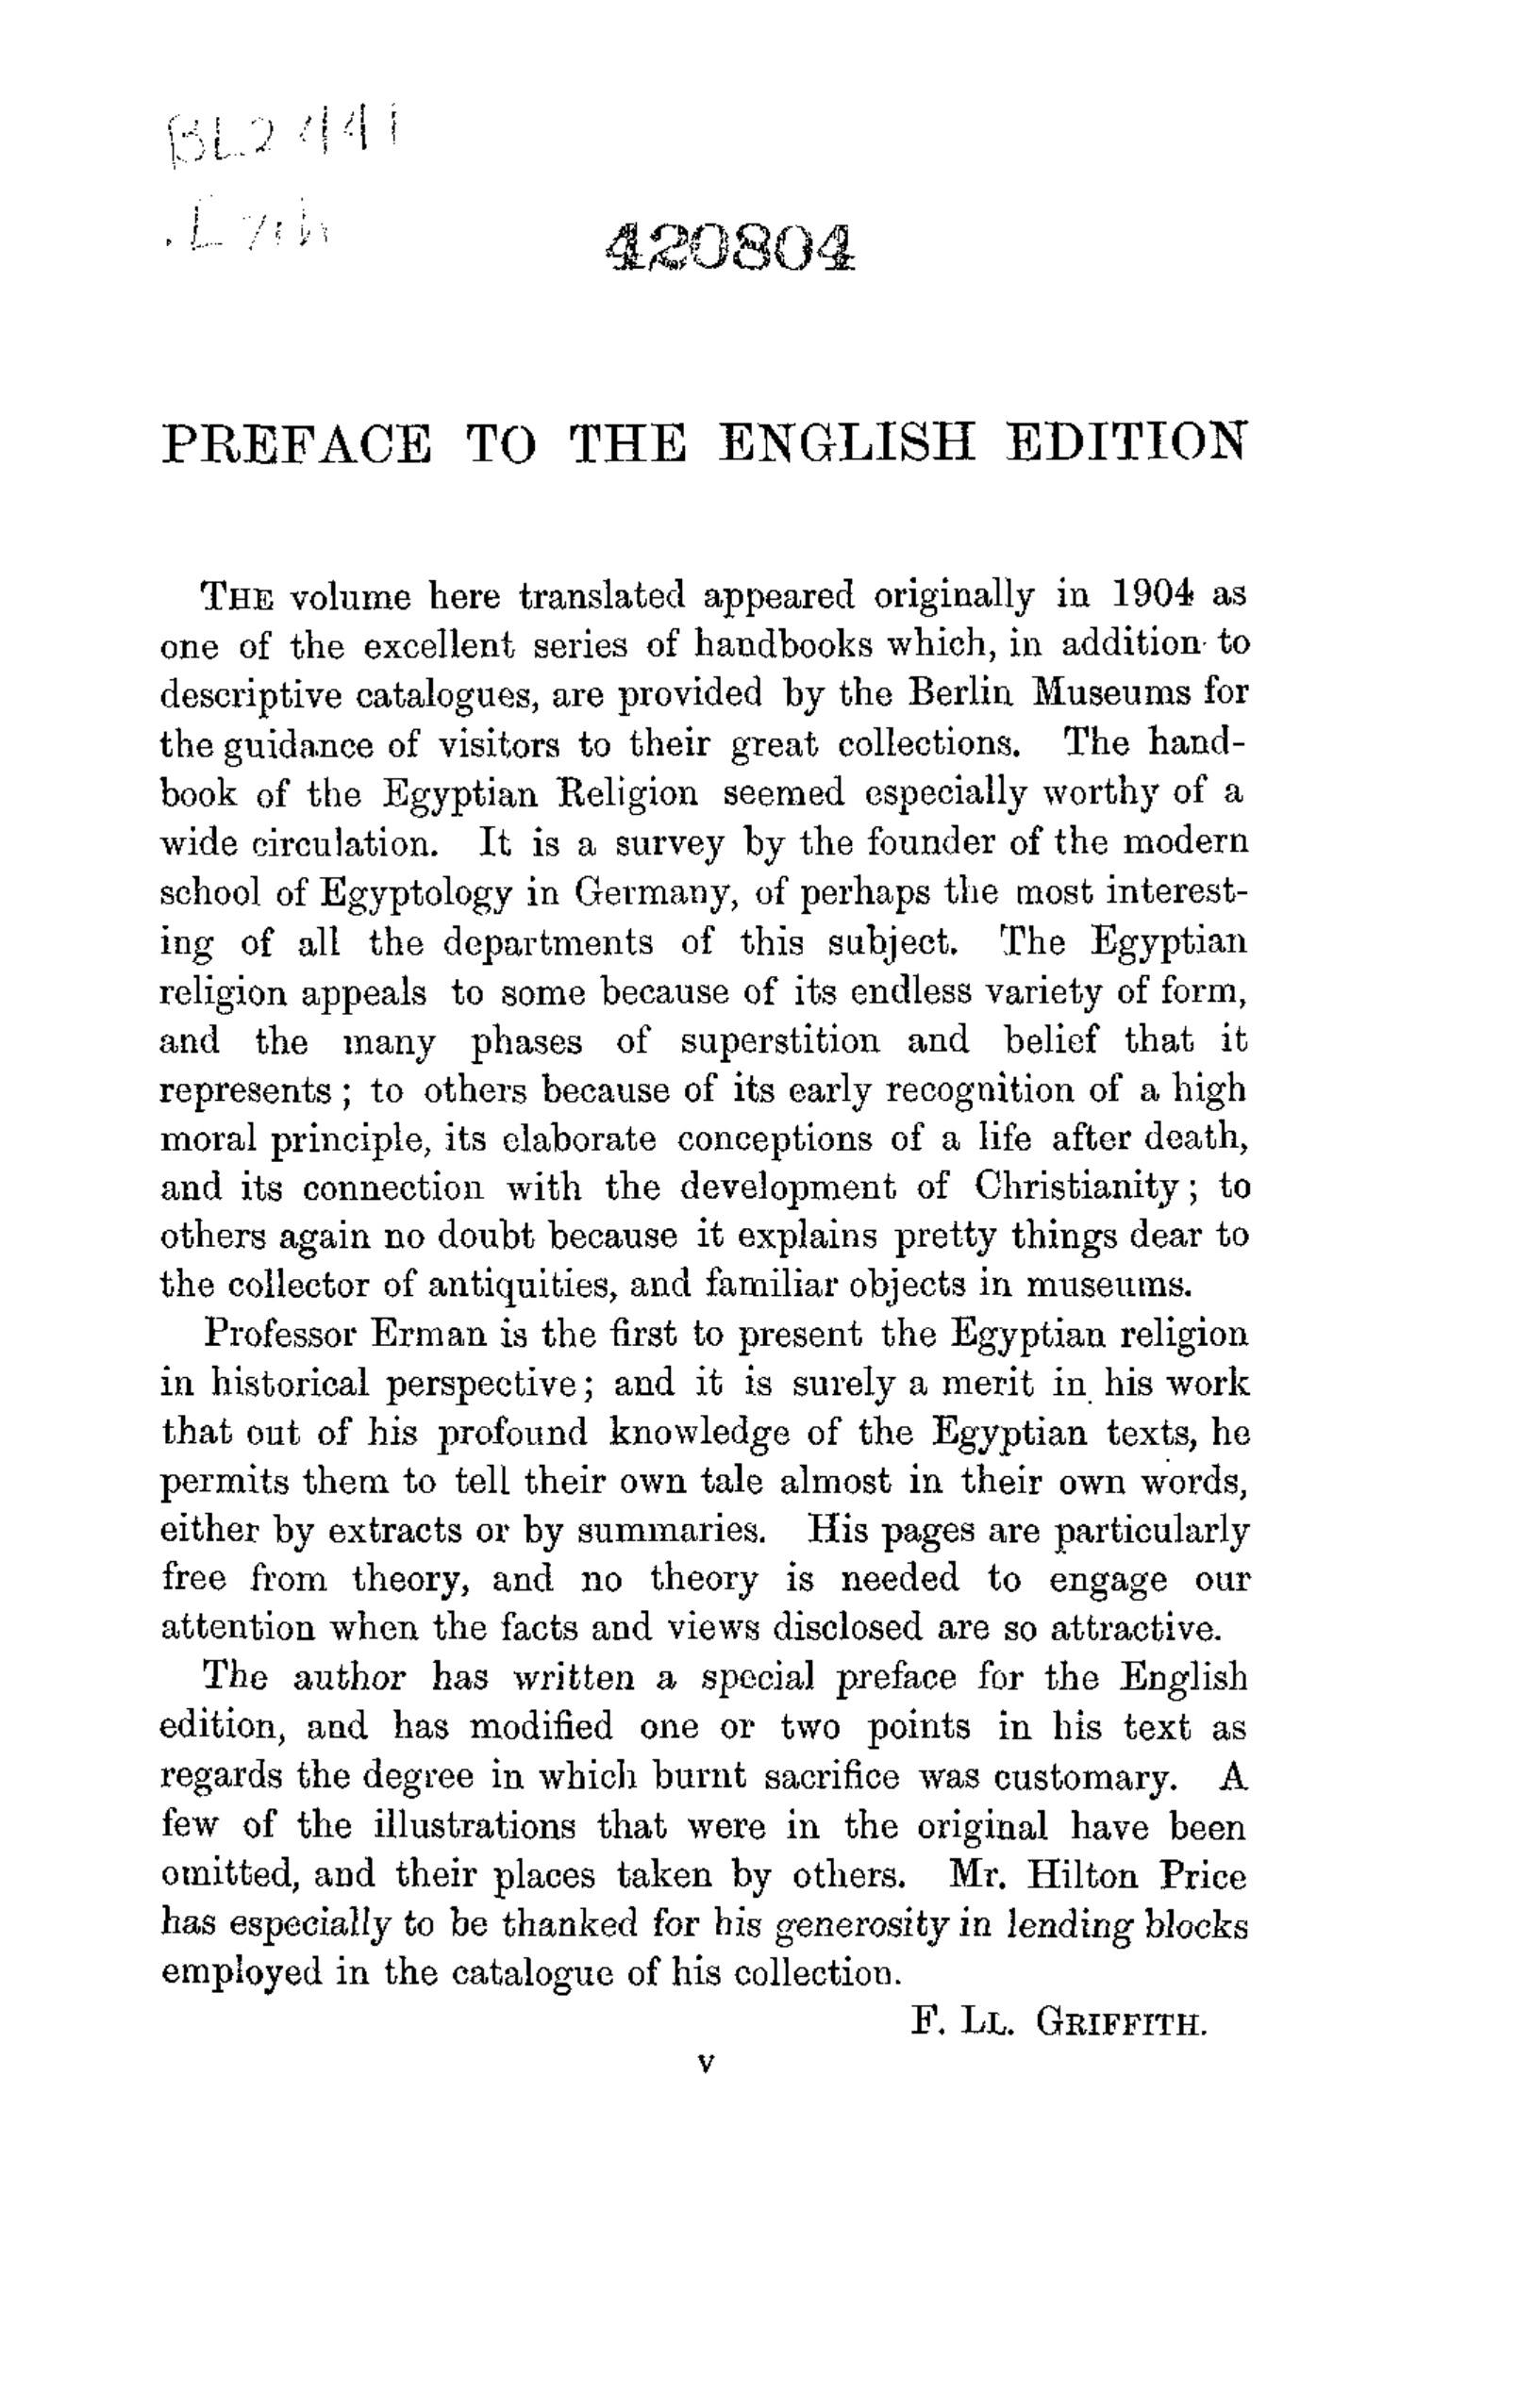 BL2441
420804
PREFACE TO THE ENGLISH EDITION
THE volume here translated appeared originally in 1904 as
one of the excellent series of handbooks which, in addition to
descriptive catalogues, are provided by the Berlin Museums for
the guidance of visitors to their great collections. The hand-
book of the Egyptian Religion seemed especially worthy of a
wide circulation. It is a survey by the founder of the modern
school of Egyptology in Germany, of perhaps the most interest-
ing of all the departments of this subject. The Egyptian
religion appeals to some because of its endless variety of form,
and the many phases of superstition and belief that it
represents; to others because of its early recognition of a high
moral principle, its elaborate conceptions of a life after death,
and its connection with the development of Christianity; to
others again no doubt because it explains pretty things dear to
the collector of antiquities, and familiar objects in museums.
Professor Erman is the first to present the Egyptian religion
in historical perspective; and it is surely a merit in his work
that out of his profound knowledge of the Egyptian texts, he
permits them to tell their own tale almost in their own words,
either by extracts or by summaries. His pages are particularly
free from theory, and no theory is needed to engage our
attention when the facts and views disclosed are so attractive.
The author has written a special preface for the English
edition, and has modified one or two points in his text as
regards the degree in which burnt sacrifice was customary. A
few of the illustrations that were in the original have been
omitted, and their places taken by others. Mr. Hilton Price
has especially to be thanked for his generosity in lending blocks
employed in the catalogue of his collection.
F. LL. GRIFFITH.
v